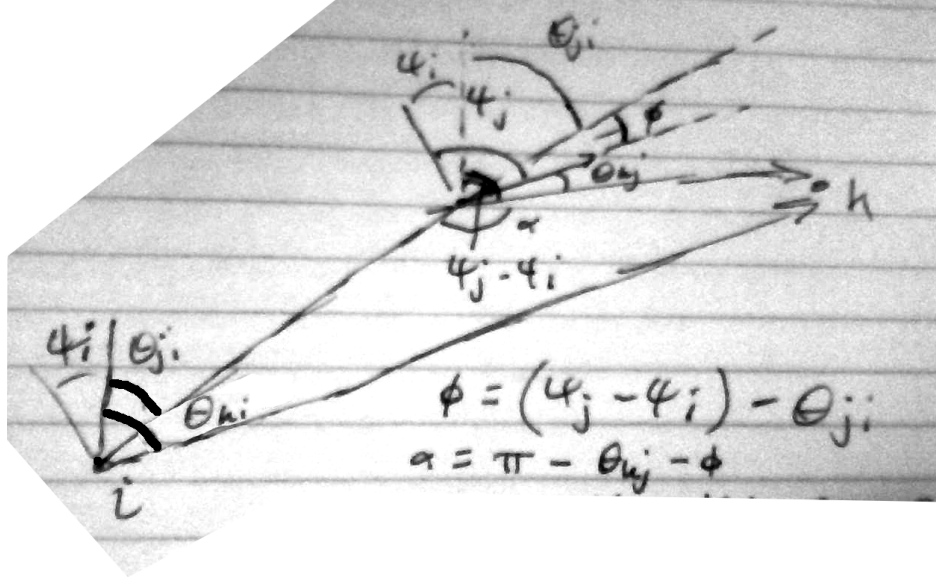 θji
ψi ψj φ
θhj
h
α
ψj - ψi
ψi θji
θhi
φ = (ψj - ψi) - θji
α = π - θhj - φ
i